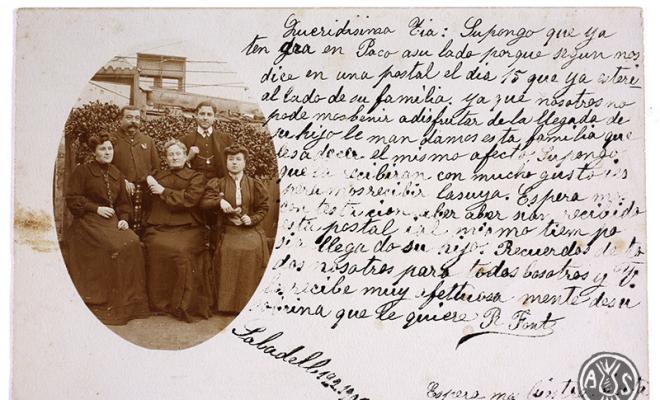 Queridisima Tia: Supongo que ya
ten gra en Paco asu lado porque segun nos
dice en una postal el dia 15 que ya estere
al lado de su familia. ya que nosotros no
pode mos benir a disfrutar de la llegada de
su hijo le man damos esta familia que
les a decer el mismo afecto, Supongo
que la reciberan con mucho gusto
peramos recibir la suya. Espera mos
con testacion aber aber sian recivido
esta postal y al mismo tiem po
si a llega do su hijo. Recuerdos de to
dos nosotros para todos bosotros y V.
la recibe muy efettuosa mente de su
que le quiere R. Font
Sabadell
Espera mos
AHS